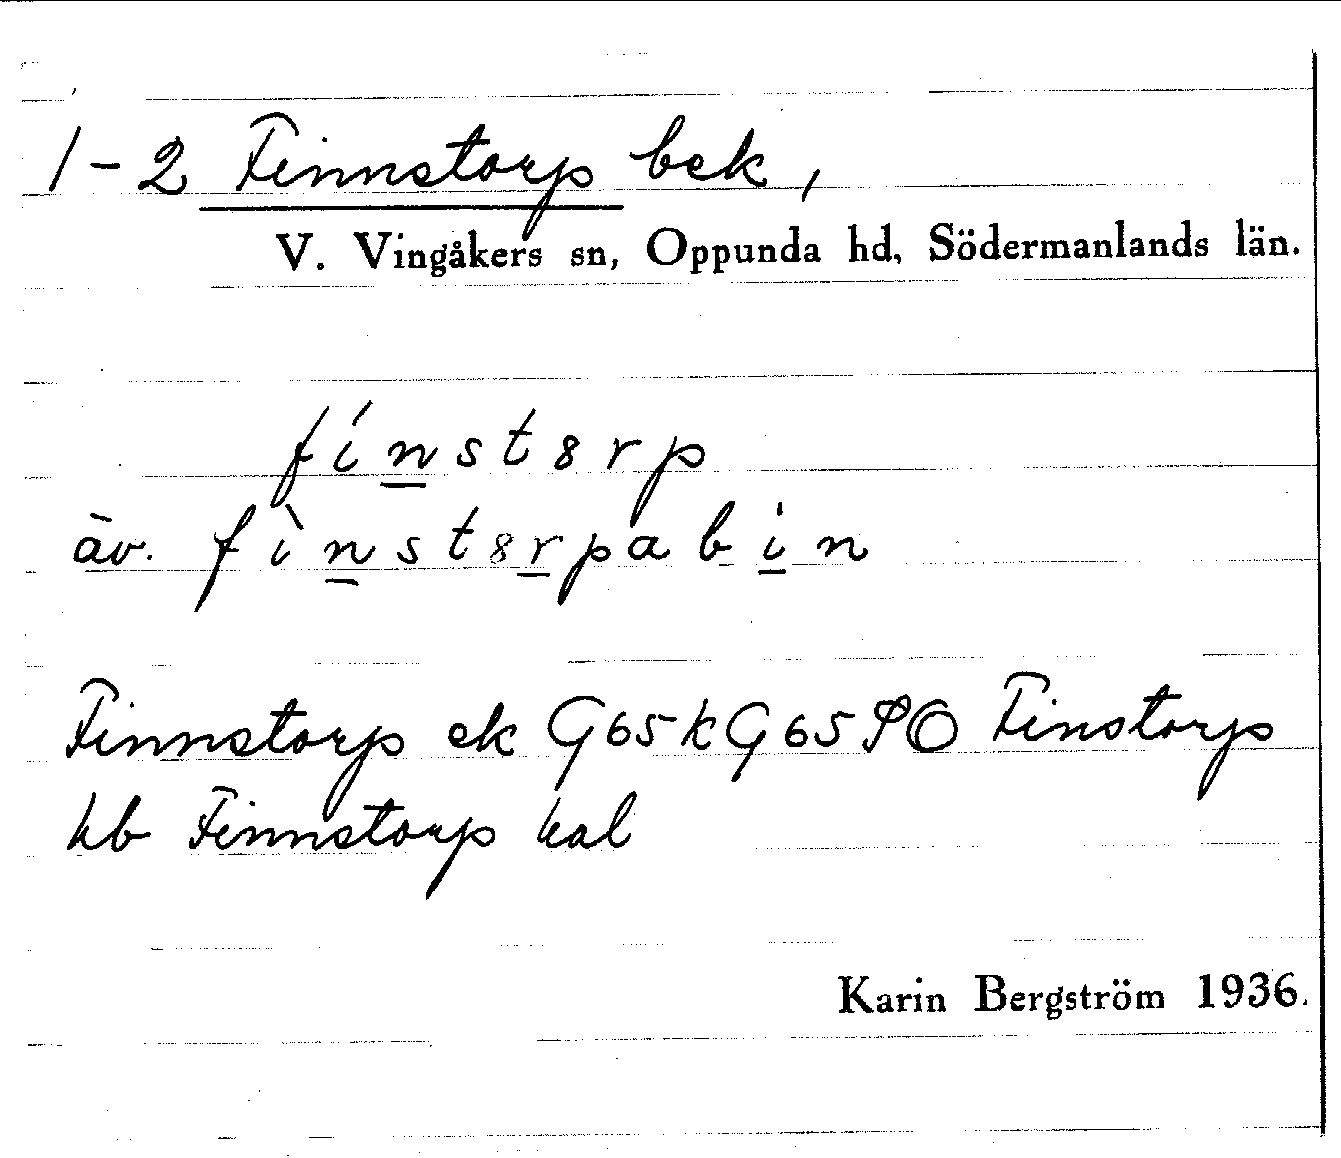 1-2 Finnstorp bek,
V. Vingåkers sn, Oppunda hd, Södermanlands län.
fínst8rp
äv. fìnst8rpabin
Finnstorp ek G65kG65 PO Finstorp
hb Finnstorp hal
Karin Bergström 1936.